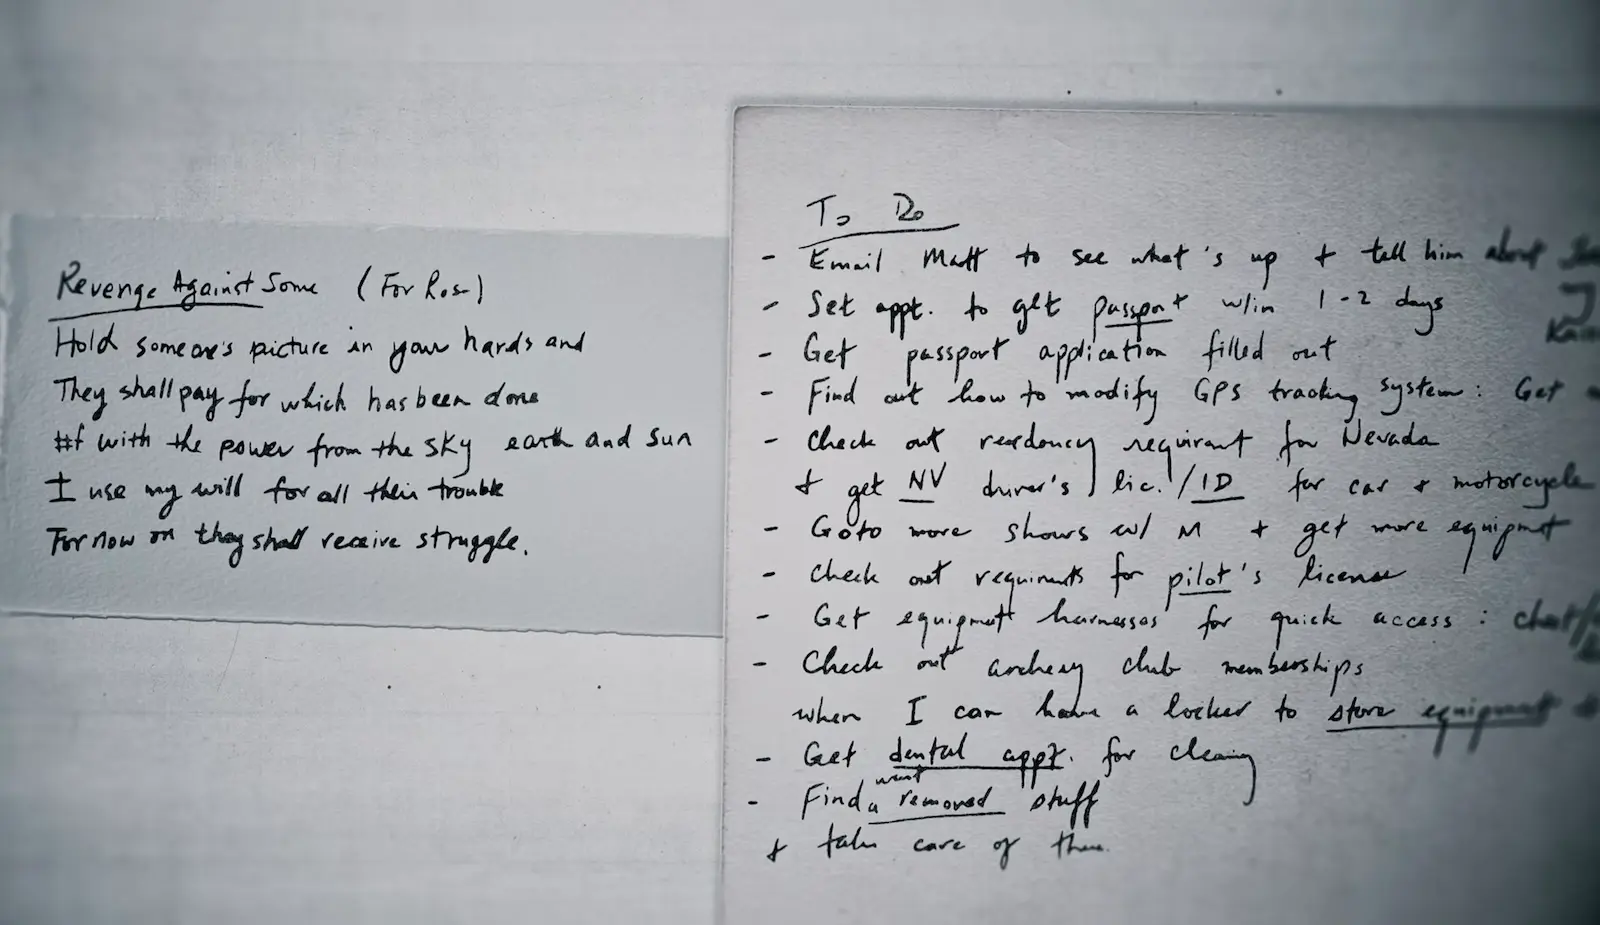 Revenge Against Some (For Ros)
Hold someone's picture in your hands and
They shall pay for which has been done
with the power from the sky earth and sun
I use my will for all their trouble
For now on they shall receive struggle.
To Do
- Email Matt to see what's up + tell him about
- Set appt. to get passport w/in 1-2 days
- Get passport application filled out
- Find out how to modify GPS tracking system: Get
- Check out residency requirant for Nevada
+ get NV driver's lic./ID for car + motorcycle
- Goto more shows w/ M + get more equipmt
- Check out requirmts for pilot's license
- Get equipmt harnesses for quick access:
- Check out archery club memberships
when I can have a locker to store equipment
- Get dental appt. for cleaning
- Find removed stuff
+ take care of